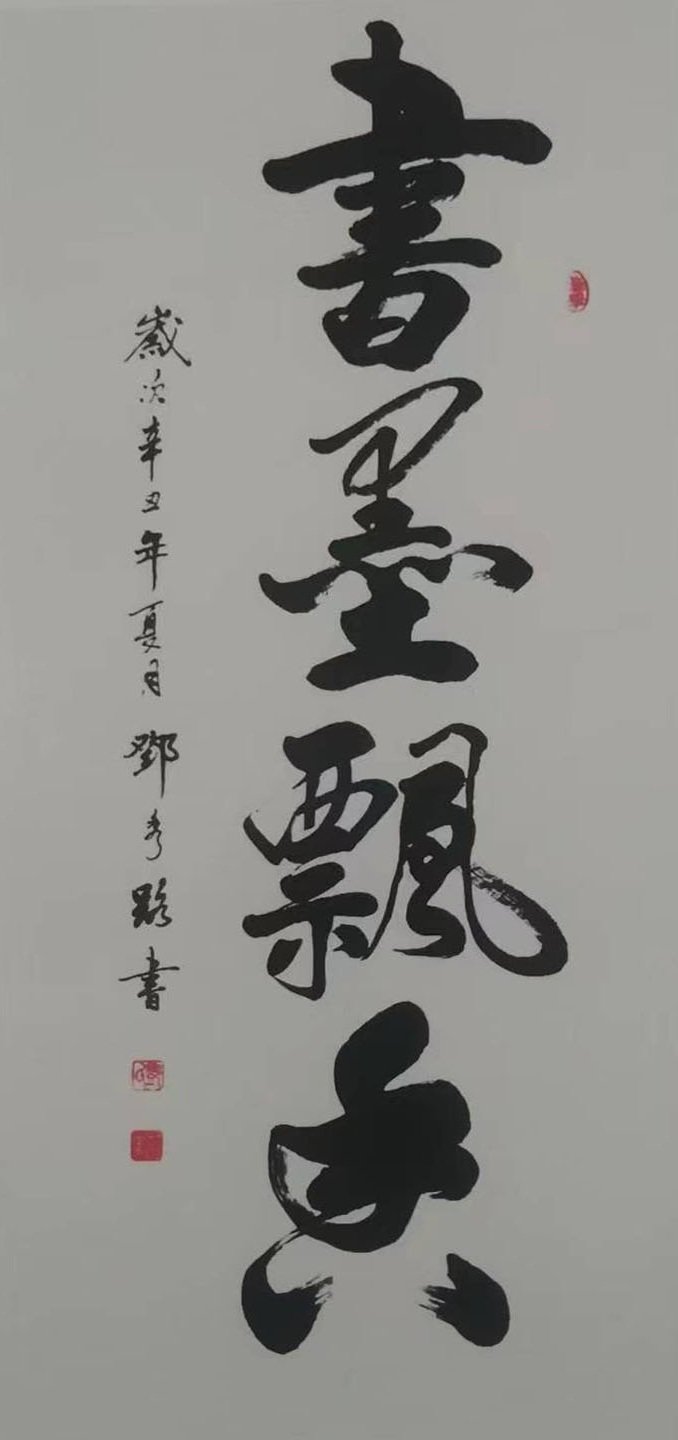 書墨飄香
歲次辛丑年夏月鄧秀路書